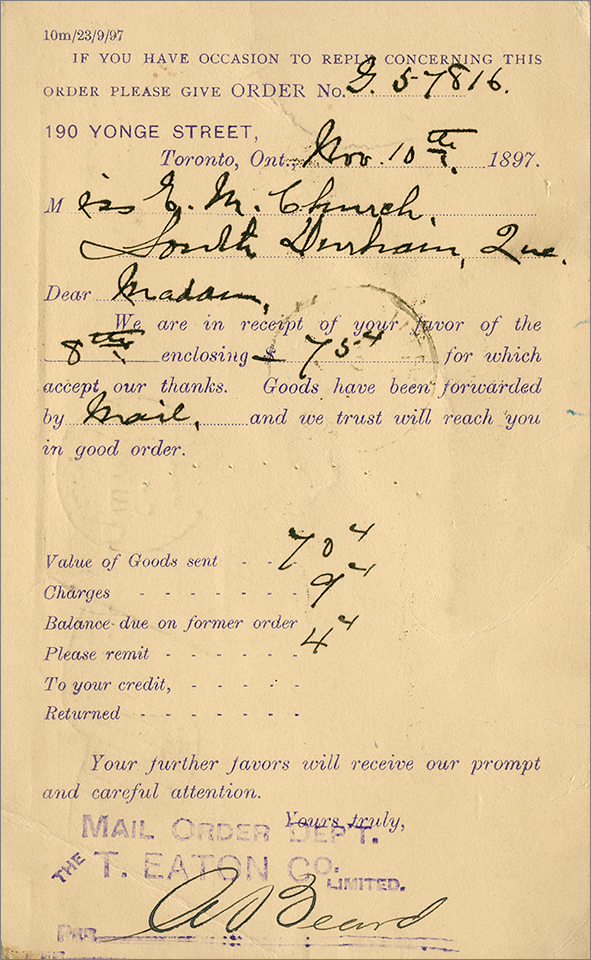 10m/23/9/97
IF YOU HAVE OCCASION TO REPLY CONCERNING THIS
ORDER PLEASE GIVE ORDER No. G. 57816.
190 YONGE STREET,
Toronto, Ont., Nov. 10th, 1897.
Miss E. M. Church,
South Durham, Que.
Dear Madam,
We are in receipt of your favor of the
8th enclosing $ 75¢ for which
accept our thanks. Goods have been forwarded
by Mail, and we trust will reach you
in good order.
Value of Goods sent - - - 70¢
Charges - - - - - - - 9¢
Balance due on former order
Please remit - - - - - - 4¢
To your credit, - - - - -
Returned - - - - - - -
Your further favors will receive our prompt
and careful attention.
Yours truly,
MAIL ORDER DEPT.
THE T. EATON CO. LIMITED.
PER A Beard